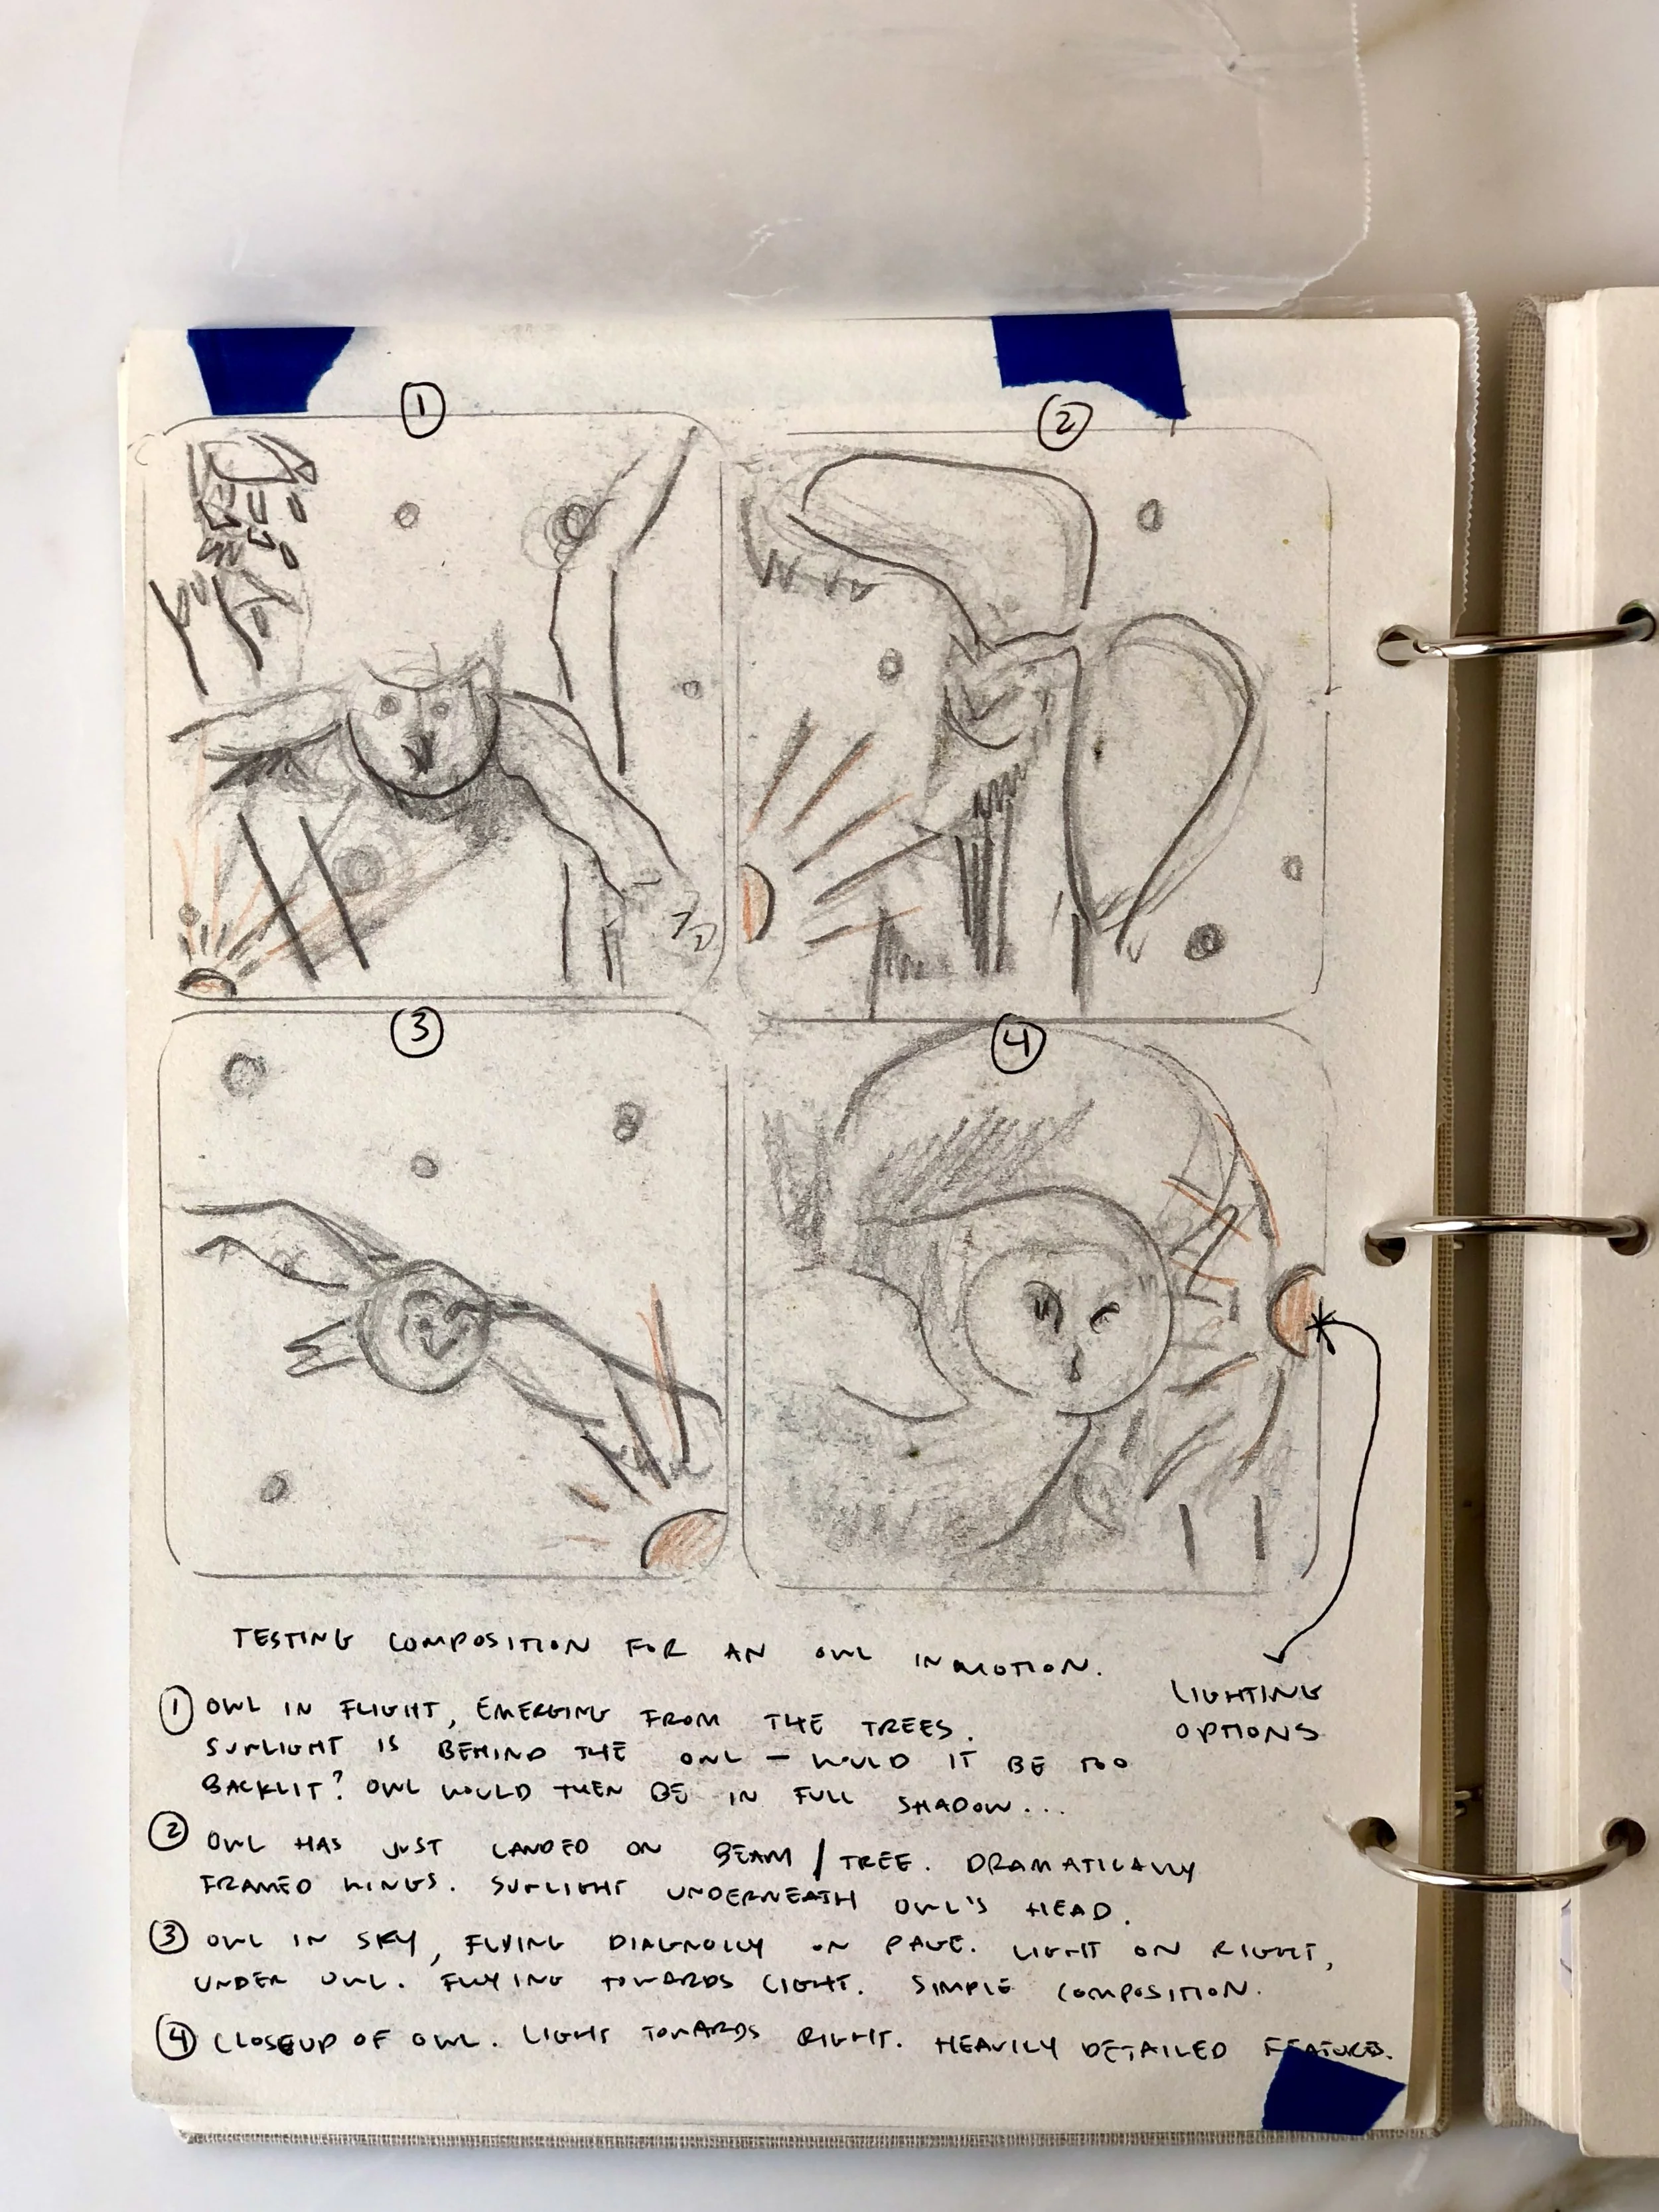 1
2
3
4
TESTING COMPOSITION FOR AN OWL IN MOTION.
LIGHTING
OPTIONS
1 OWL IN FLIGHT, EMERGING FROM THE TREES.
SUNLIGHT IS BEHIND THE OWL — WOULD IT BE TOO
BACKLIT? OWL WOULD THEN BE IN FULL SHADOW...
2 OWL HAS JUST LANDED ON BEAM / TREE. DRAMATICALLY
FRAMED WINGS. SUNLIGHT UNDERNEATH OWL'S HEAD.
3 OWL IN SKY, FLYING DIAGNOLLY ON PAGE. LIGHT ON RIGHT,
UNDER OWL. FLYING TOWARDS LIGHT. SIMPLE COMPOSITION.
4 CLOSEUP OF OWL. LIGHT TOWARDS RIGHT. HEAVILY DETAILED FEATURES.